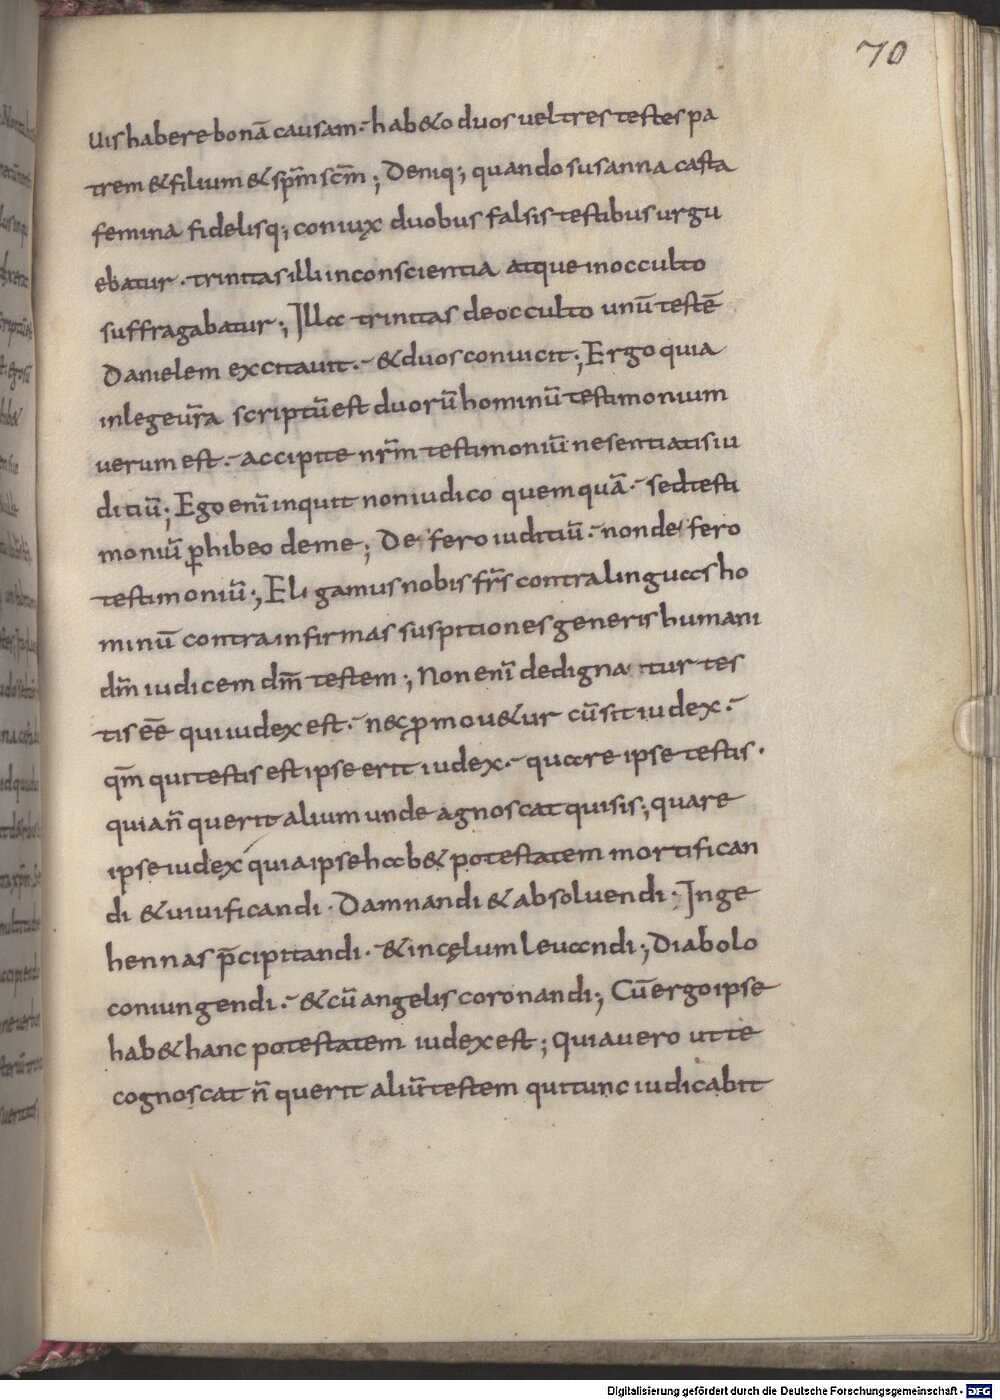 70
uis habere bonā causam. hab&o duos uel tres testes pa
trem & filium & sp̄m sc̄m; Deniq; quando susanna casta
femina fidelisq; coniux duobus falsis testibus urgu
ebatur. trinitas illi in conscientia atque in occulto
suffragabatur; Illa trinitas de occulto unū testē
Danielem excitauit. & duos conuicit; Ergo quia
in lege ur̄a scriptū est duorū hominū testimonium
uerum est. accipite nr̄m testimoniū ne sentiatis iu
ditiū; Ego enī inquit non iudico quemquā. sed testi
moniū ꝑhibeo de me; Defero iuditiū. non defero
testimoniū; Eligamus nobis fr̄s contra linguas ho
minū contra infirmas suspitiones generis humani
dm̄ iudicem dm̄ testem; Non enī dedignatur tes
tis eē̄ qui iudex est. nec ꝑmou&ur cū sit iudex.
qm̄ qui testis est ipse erit iudex. quare ipse testis.
quia n̄ querit alium unde agnoscat qui sis; quare
ipse iudex quia ipse hab& potestatem mortifican
di & uiuificandi. Damnandi & absoluendi. In ge
hennas p̄cipitandi. & in cęlum leuandi; Diabolo
coniungendi. & cū angelis coronandi; Cū ergo ipse
hab& hanc potestatem iudex est; Quia uero ut te
cognoscat n̄ querit aliū testem qui tunc iudicabit
Digitalisierung gefördert durch die Deutsche Forschungsgemeinschaft - DFG